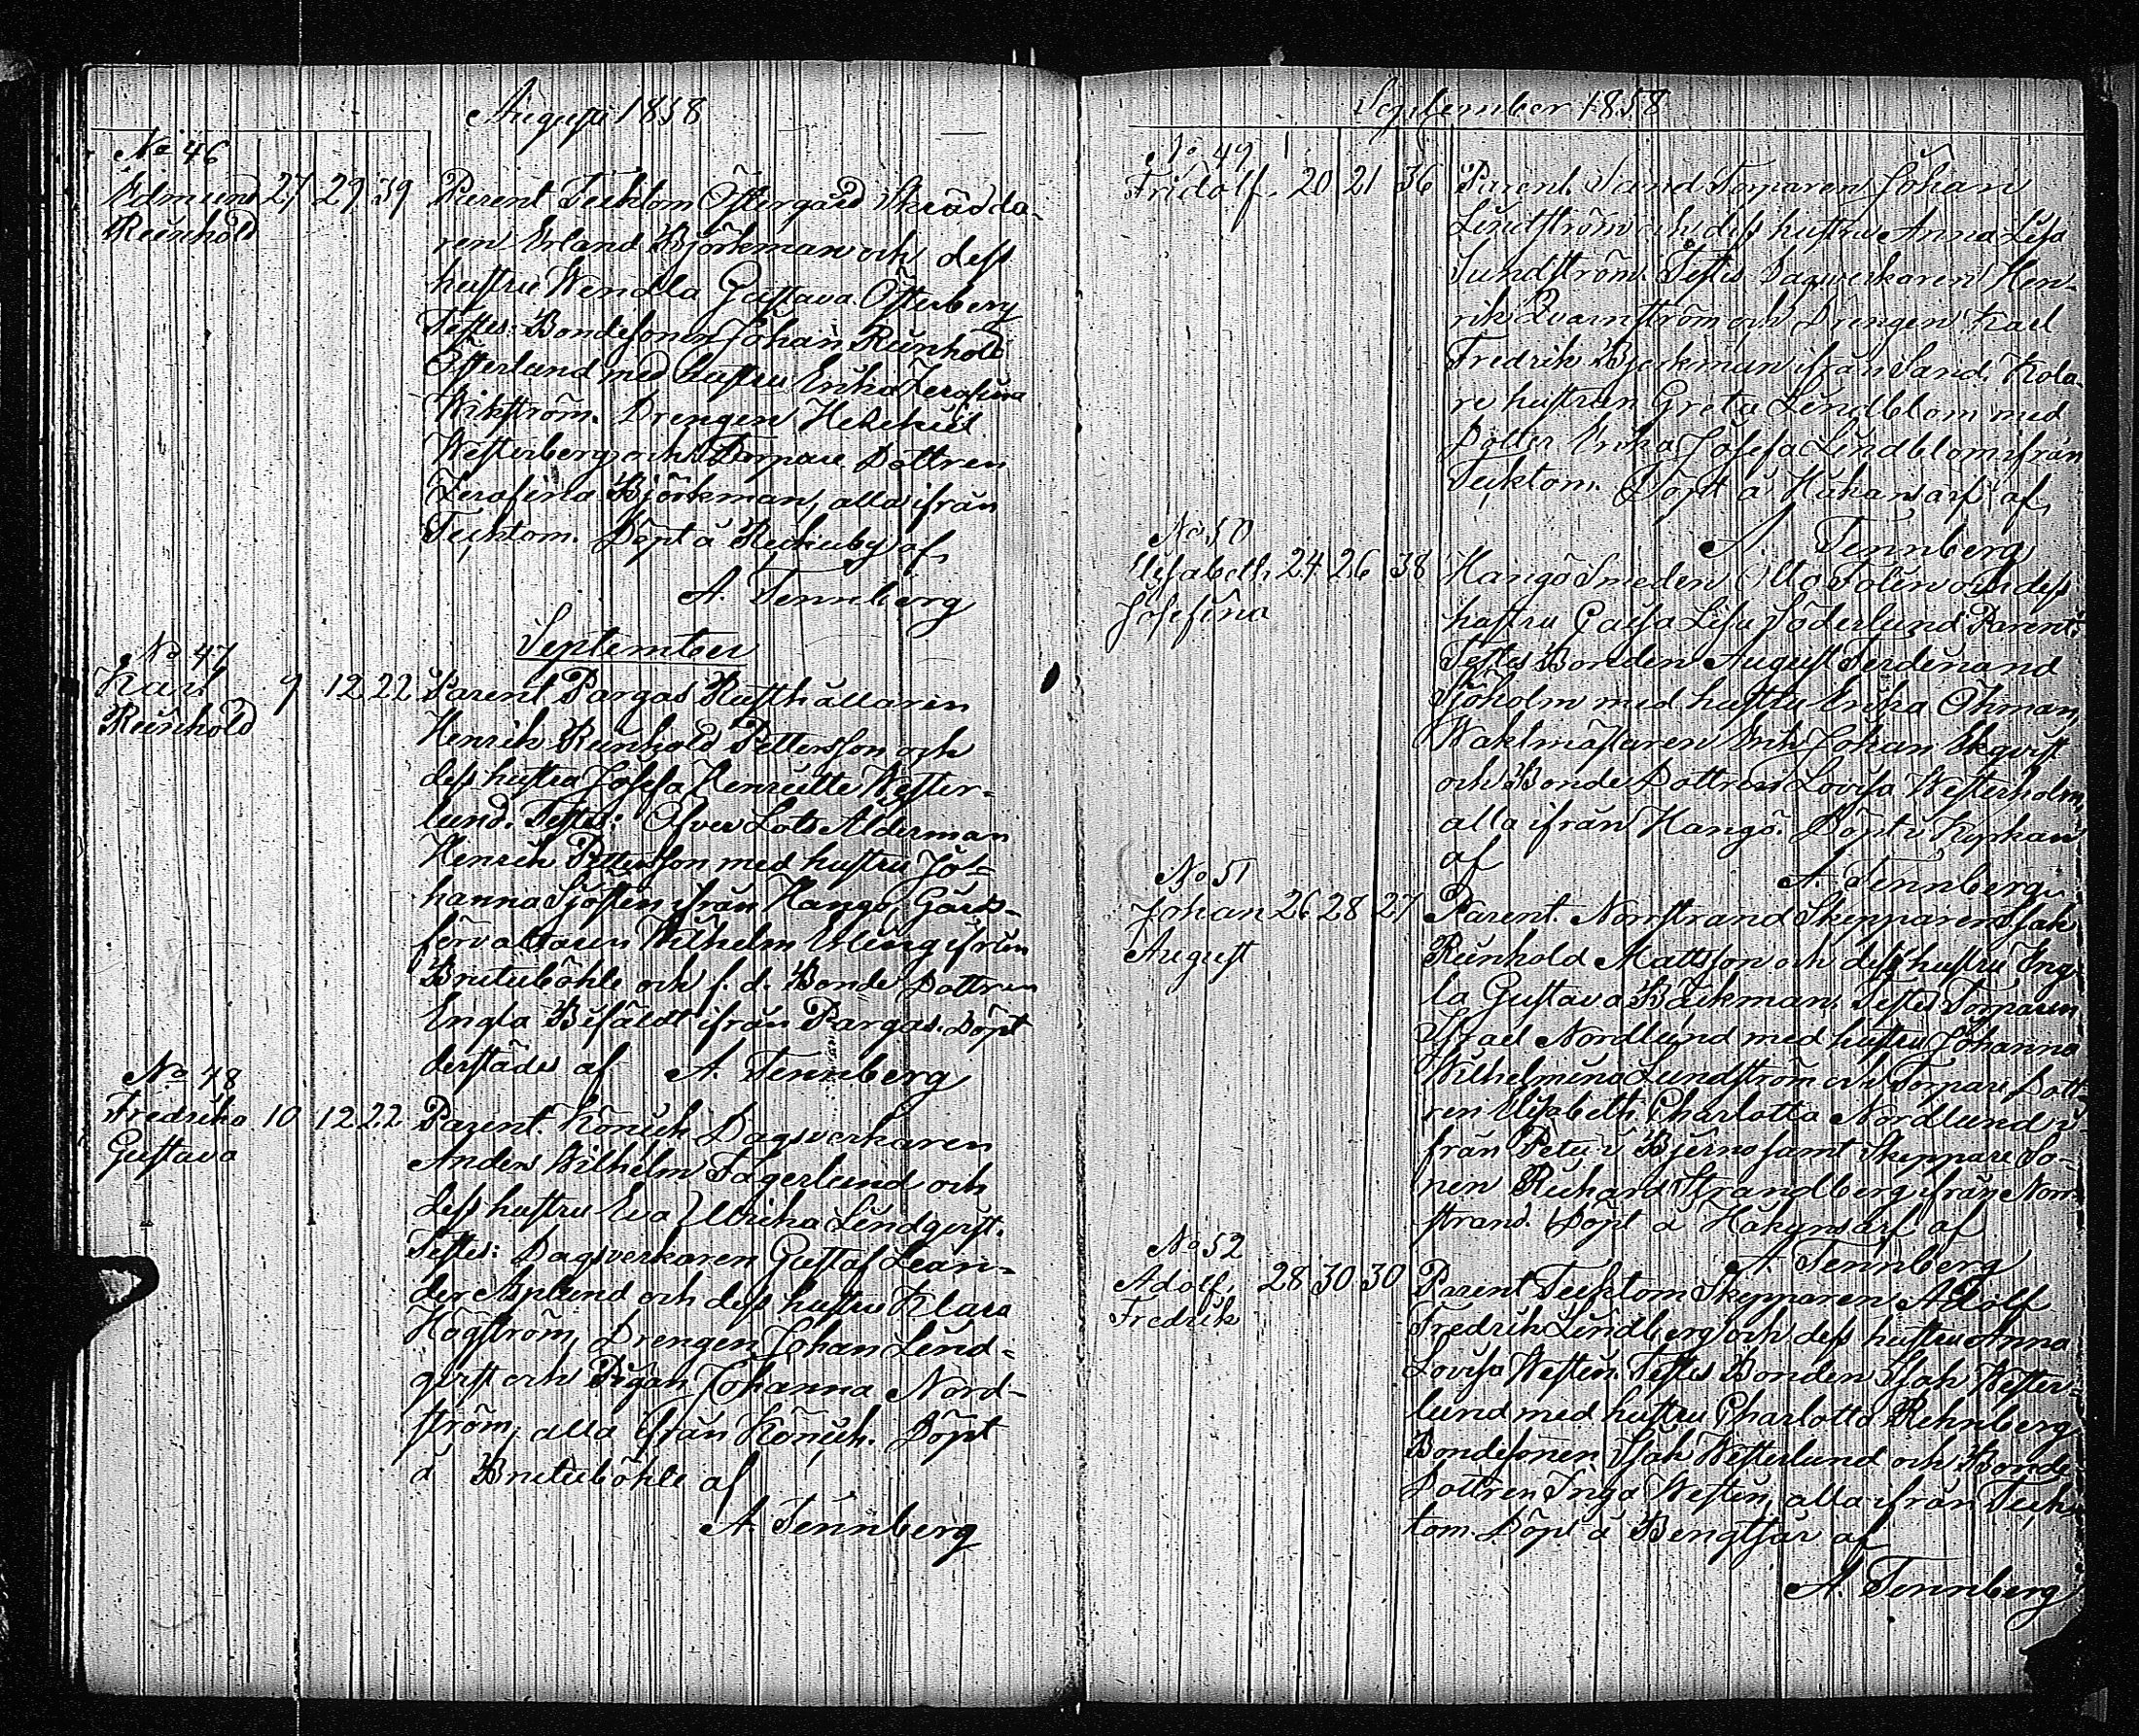 Augusti 1858
No 46
Edmund 27 29 39 Parent Tecktom Östergård Skrädda-
Reinhold
ren Erland Björkman och dess
hustru Wendla Gustava Österberg
Testes: Bondesonen Johan Reinhold
Österlund med hustru Erika Serafina
Wikström. Drengen Hesekiel
Westerberg och Torpare Dottren
Serafina Björkman, alla ifrån
Tecktom. Döpt å Reckuby af
A. Tennberg
September
No 47
Karl 9 12 22 Parent Pargas Rusthållaren
Reinhold
Henrik Reinhold Pettersson och
dess hustru Josefa Henriette Wester-
lund. Testes: Öfver Lots Ålderman
Henrik Pettersson med hustru Jo-
hanna Sjösten ifrån Hangö, Gårds-
förvaltaren Wilhelm Erling ifrån
Bruteböhle och f. d. Bonde Dottren
Engla ifrån Pargas. Döpt
derstädes af A. Tennberg
No 48
Fredrika 10 12 22 Parent. Dagsverkaren
Gustava
Anders Wilhelm Fagerlund och
dess hustru Eva Ulrika Lindqvist.
Testes: Dagsverkaren Gustaf Lean-
der Asplund och dess hustru Klara
Högström, Drengen Johan Lind-
qvist och Pigan Johanna Nord-
ström, alla ifrån Döpt
å Bruteböhle af
A. Tennberg
September 1858
No 49
Fridolf 20 21 36 Parent. Sand Torparen Johan
Lindström och dess hustru Anna Lisa
Sundström. Testes Dagsverkaren Hen-
rik Qvarnström och Drengen Karl
Fredrik Björkman ifrån Sand, Kola-
re hustrun Greta Lindblom med
Dotter Erika Josefa Lindblom ifrån
Tecktom. Döpt å Håkansarf af
A. Tennberg
No 50
Elisabeth 24 26 38 Hangö Smeden Otto Folin och dess
Josefina
hustru Caisa Lisa Söderlund Parent.
Testes Bonden August Ferdinand
Sjöholm med hustru Erika Öhman,
Waktmästaren Erik Johan Ekqvist
och Bonde Dottren Lovisa Westerholm,
alla ifrån Hangö. Döpt i Kyrkan
af
A. Tennberg
No 51
Johan 26 28 27 Parent. Norrstrand Skepparen Isak
August
Reinhold Mattsson och dess hustru Ing-
la Gustava Bäckman. Testes Torparen
Israel Nordlund med hustru Johanna
Wilhelmina Lundström och Torpare Dott-
ren Elisabeth Charlotta Nordlund i
från Peru i Bjerno samt Skeppare So-
nen Richard Strandberg ifrån Norr-
strand. Döpt å Håkansarf af
A. Tennberg
No 52
Adolf 28 30 30 Parent Tecktom Skepparen Adolf
Fredrik
Fredrik Lindberg och dess hustru Anna
Lovisa Westén. Testes Bonden Isak Wester-
lund med hustru Charlotta Rehnberg
Bondesonen Isak Westerlund och Bonde
Dottren Inga Westén, alla ifrån Teck-
tom. Döpt å Bengtsår af
A. Tennberg